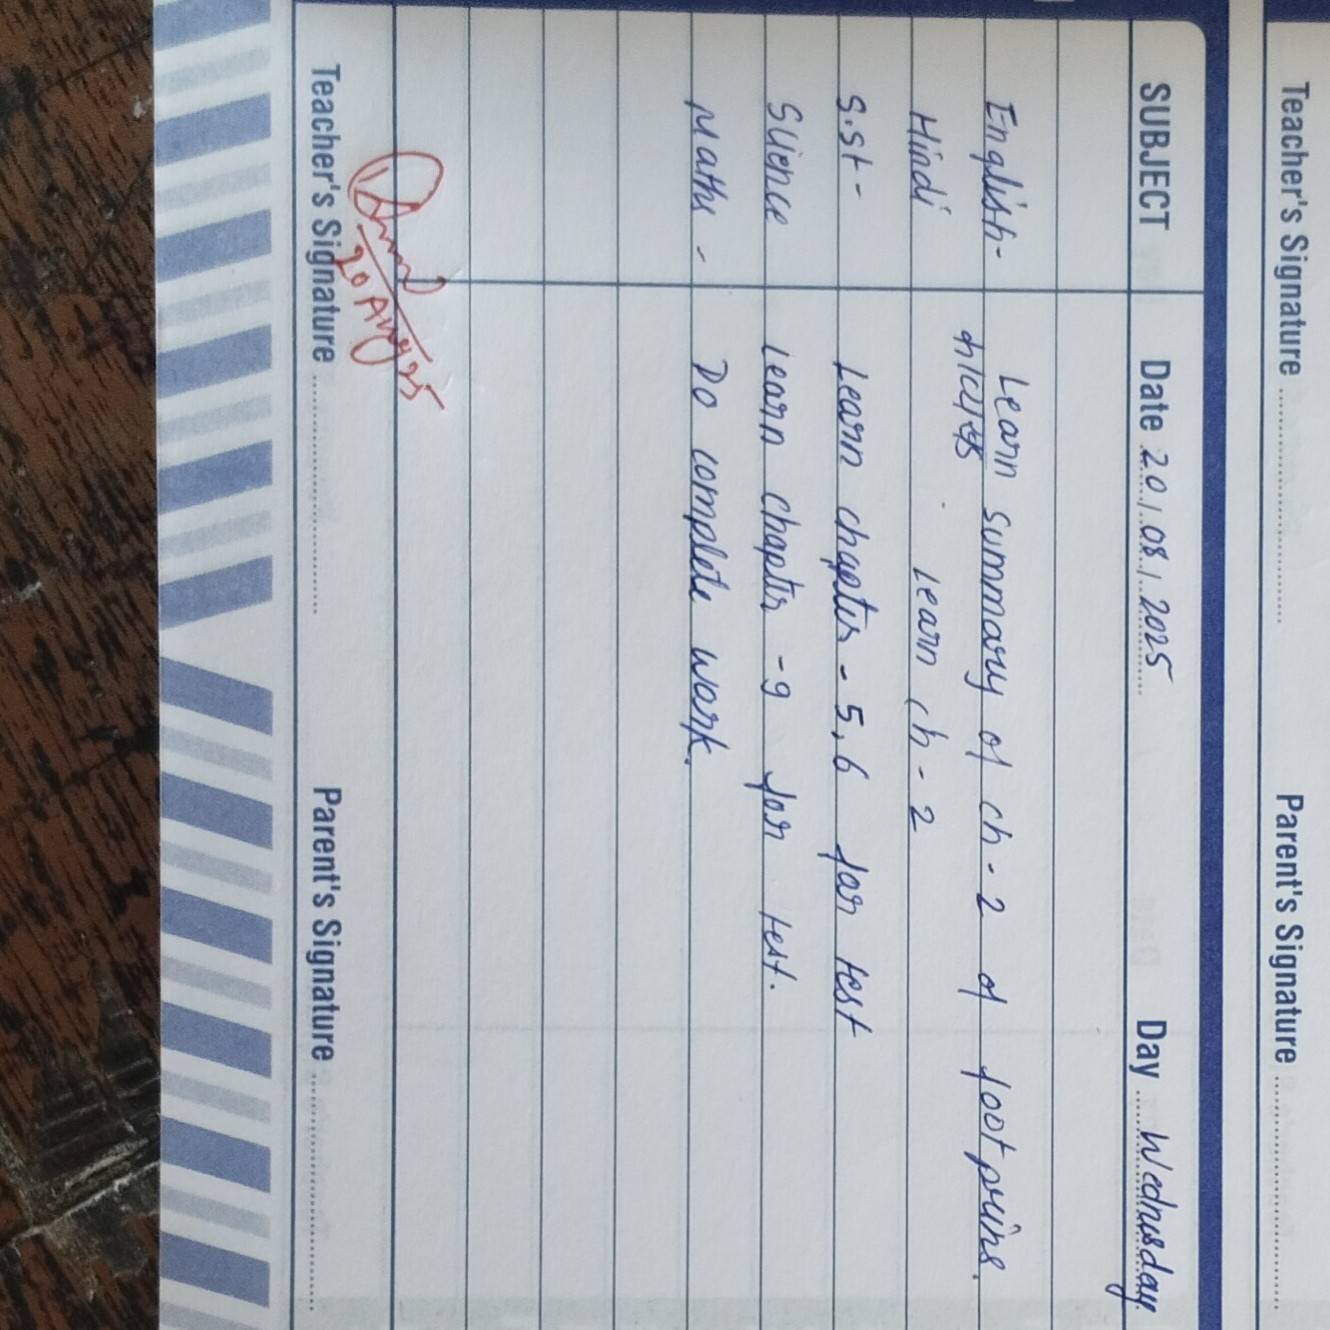 Teacher's Signature ........................ Parent's Signature ........................
SUBJECT Date 20/08/2025 Day Wednesday
English- Learn summary of ch-2 of footprins.
Hindi Learn ch-2
S.st- Learn chapter-5,6 for test
Science Learn chapter -9 for test.
Maths - Do complete work.
20 Aug 25
Teacher's Signature ........................ Parent's Signature ........................